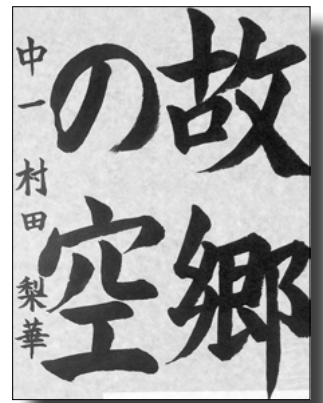 故郷
の空
中一 村田 梨華